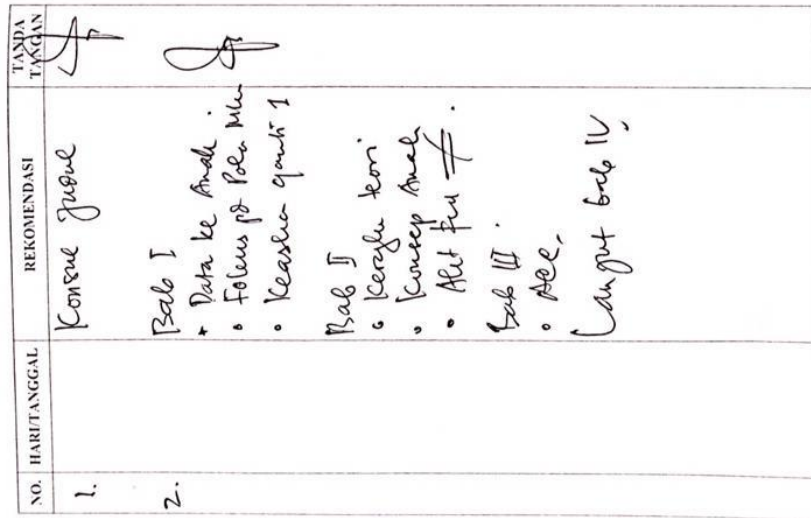 NO. HARI/TANGGAL REKOMENDASI TANDA TANGAN
1. Konsul Judul
2. Bab I
Data ke Anak.
Fokus pd Pola
Keaslian ganti 1
Bab II
teori
Konsep Anak
Alat
Bab III.
Acc.
Lanjut bab IV